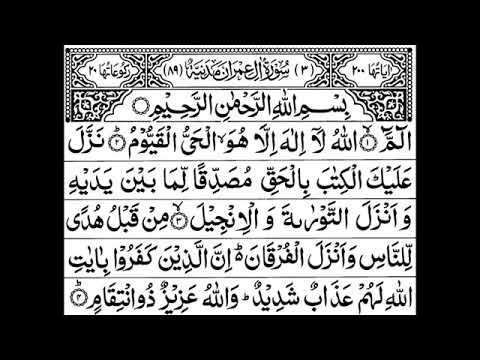 اٰیاتھا ۲۰۰ (۳) سُوْرَۃُ اٰلِ عِمْرٰنَ مَدَنِیَّۃٌ (۸۹) رکوعاتھا ۲۰
بِسْمِ اللهِ الرَّحْمٰنِ الرَّحِيْمِ
الٓمّٓ ۙ﴿۱﴾ اللهُ لَاۤ اِلٰهَ اِلَّا هُوَ ۙ الْحَيُّ الْقَيُّوْمُ ؕ نَزَّلَ
عَلَيْكَ الْكِتٰبَ بِالْحَقِّ مُصَدِّقًا لِّمَا بَيْنَ يَدَيْهِ
وَ اَنْزَلَ التَّوْرٰىةَ وَ الْاِنْجِيْلَ ۙ﴿۳﴾ مِنْ قَبْلُ هُدًى
لِّلنَّاسِ وَ اَنْزَلَ الْفُرْقَانَ ؕ اِنَّ الَّذِيْنَ كَفَرُوْا بِاٰيٰتِ
اللهِ لَهُمْ عَذَابٌ شَدِيْدٌ ؕ وَاللهُ عَزِيْزٌ ذُوانْتِقَامٍ ؕ﴿۴﴾